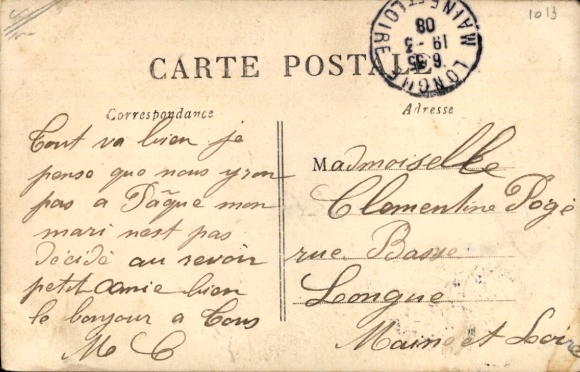 1013
CARTE POSTALE
LONGUÉ
6 35
19 -3
08
MAINE ET LOIRE
Correspondance
Tout va bien je
pense que nous yron
pas a Pâque mon
mari nest pas
décidé au revoir
petit amie bien
le bonjour a Tous
M C
Adresse
Madmoiselle
Clementine Pogé
rue Basse
Longue
Maine et Loire